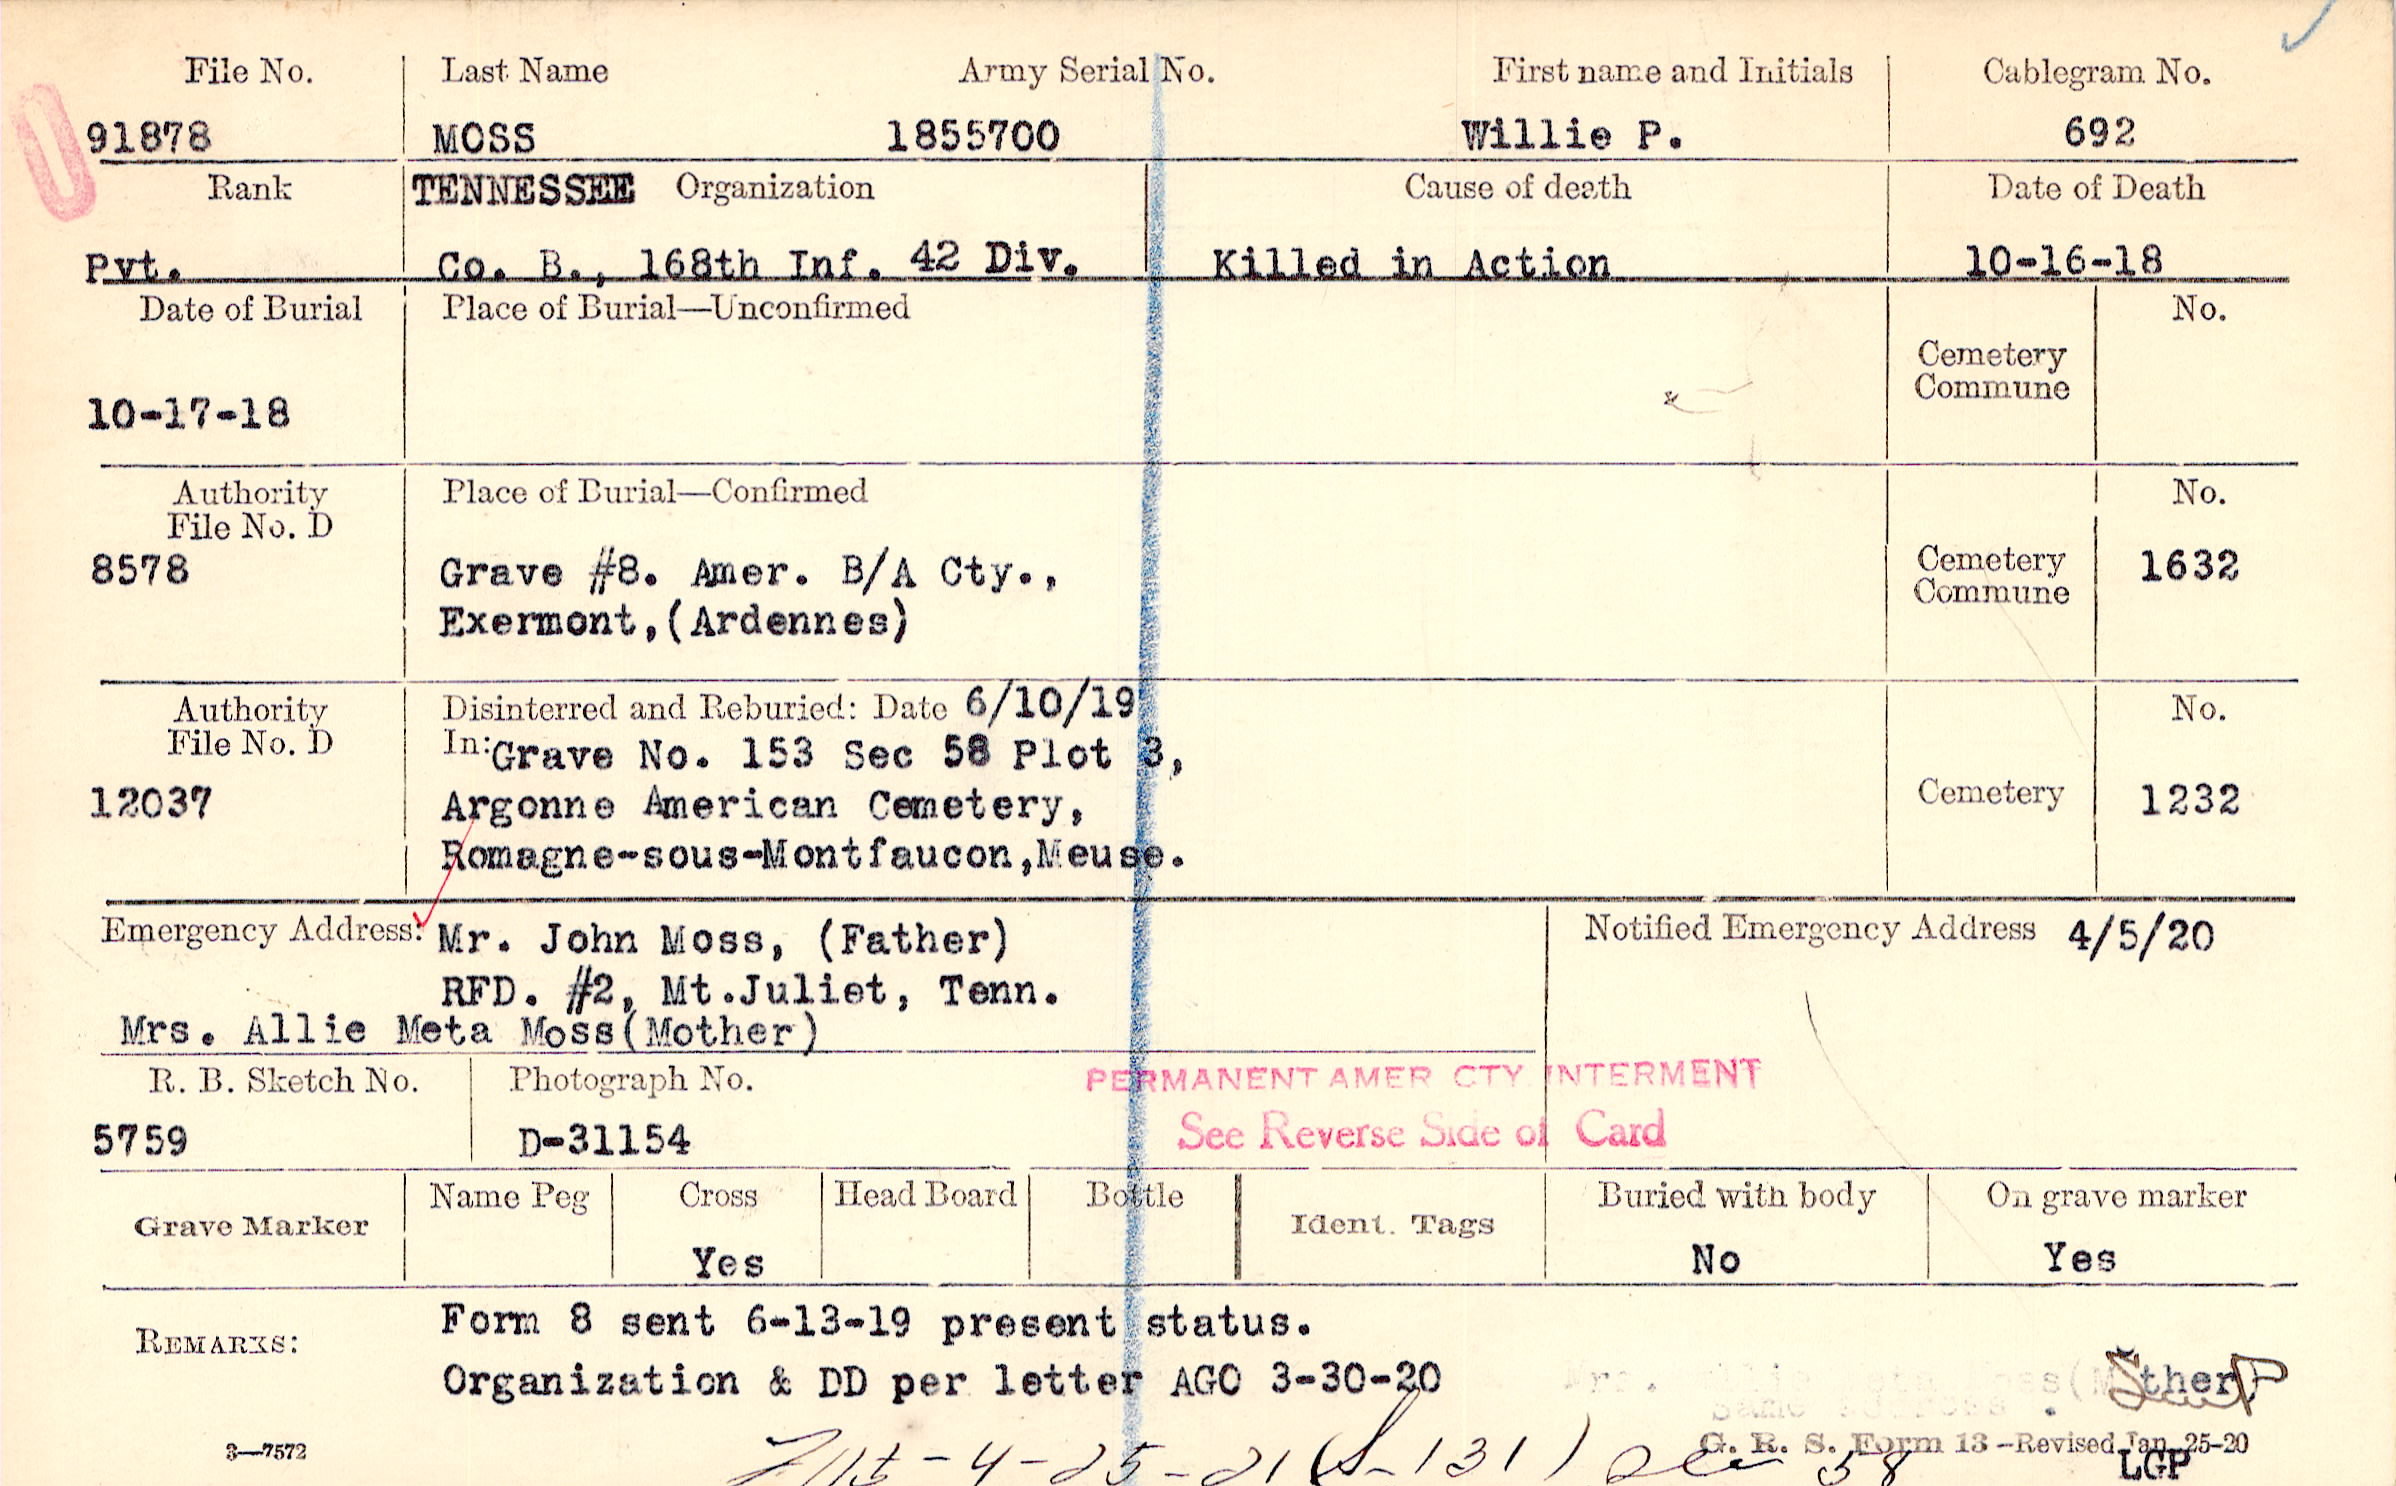 File No. Last Name Army Serial No. First name and Initials Cablegram No.
91878 MOSS 1855700 Willie P. 692
Rank TENNESSEE Organization Cause of death Date of Death
Pvt. Co. B., 168th Inf. 42 Div. Killed in Action 10-16-18
Date of Burial Place of Burial—Unconfirmed No.
Cemetery
Commune
10-17-18
Authority Place of Burial—Confirmed No.
File No. D
8578 Grave #8. Amer. B/A Cty., Cemetery 1632
Commune
Exermont,(Ardennes)
Authority Disinterred and Reburied: Date 6/10/19 No.
File No. D In:Grave No. 153 Sec 58 Plot 3,
12037 Argonne American Cemetery, Cemetery 1232
Romagne-sous-Montfaucon,Meuse.
Emergency Address: Mr. John Moss, (Father) Notified Emergency Address 4/5/20
RFD. #2, Mt.Juliet, Tenn.
Mrs. Allie Meta Moss(Mother)
R. B. Sketch No. Photograph No. PERMANENT AMER CTY INTERMENT
5759 D-31154 See Reverse Side of Card
Grave Marker Name Peg Cross Head Board Bottle Ident. Tags Buried with body On grave marker
Yes No Yes
REMARKS: Form 8 sent 6-13-19 present status.
Organization & DD per letter AGO 3-30-20
3—7572 G. R. S. Form 13—Revised Jan. 25-20
-4-25-21 (S-131) 58 LGP